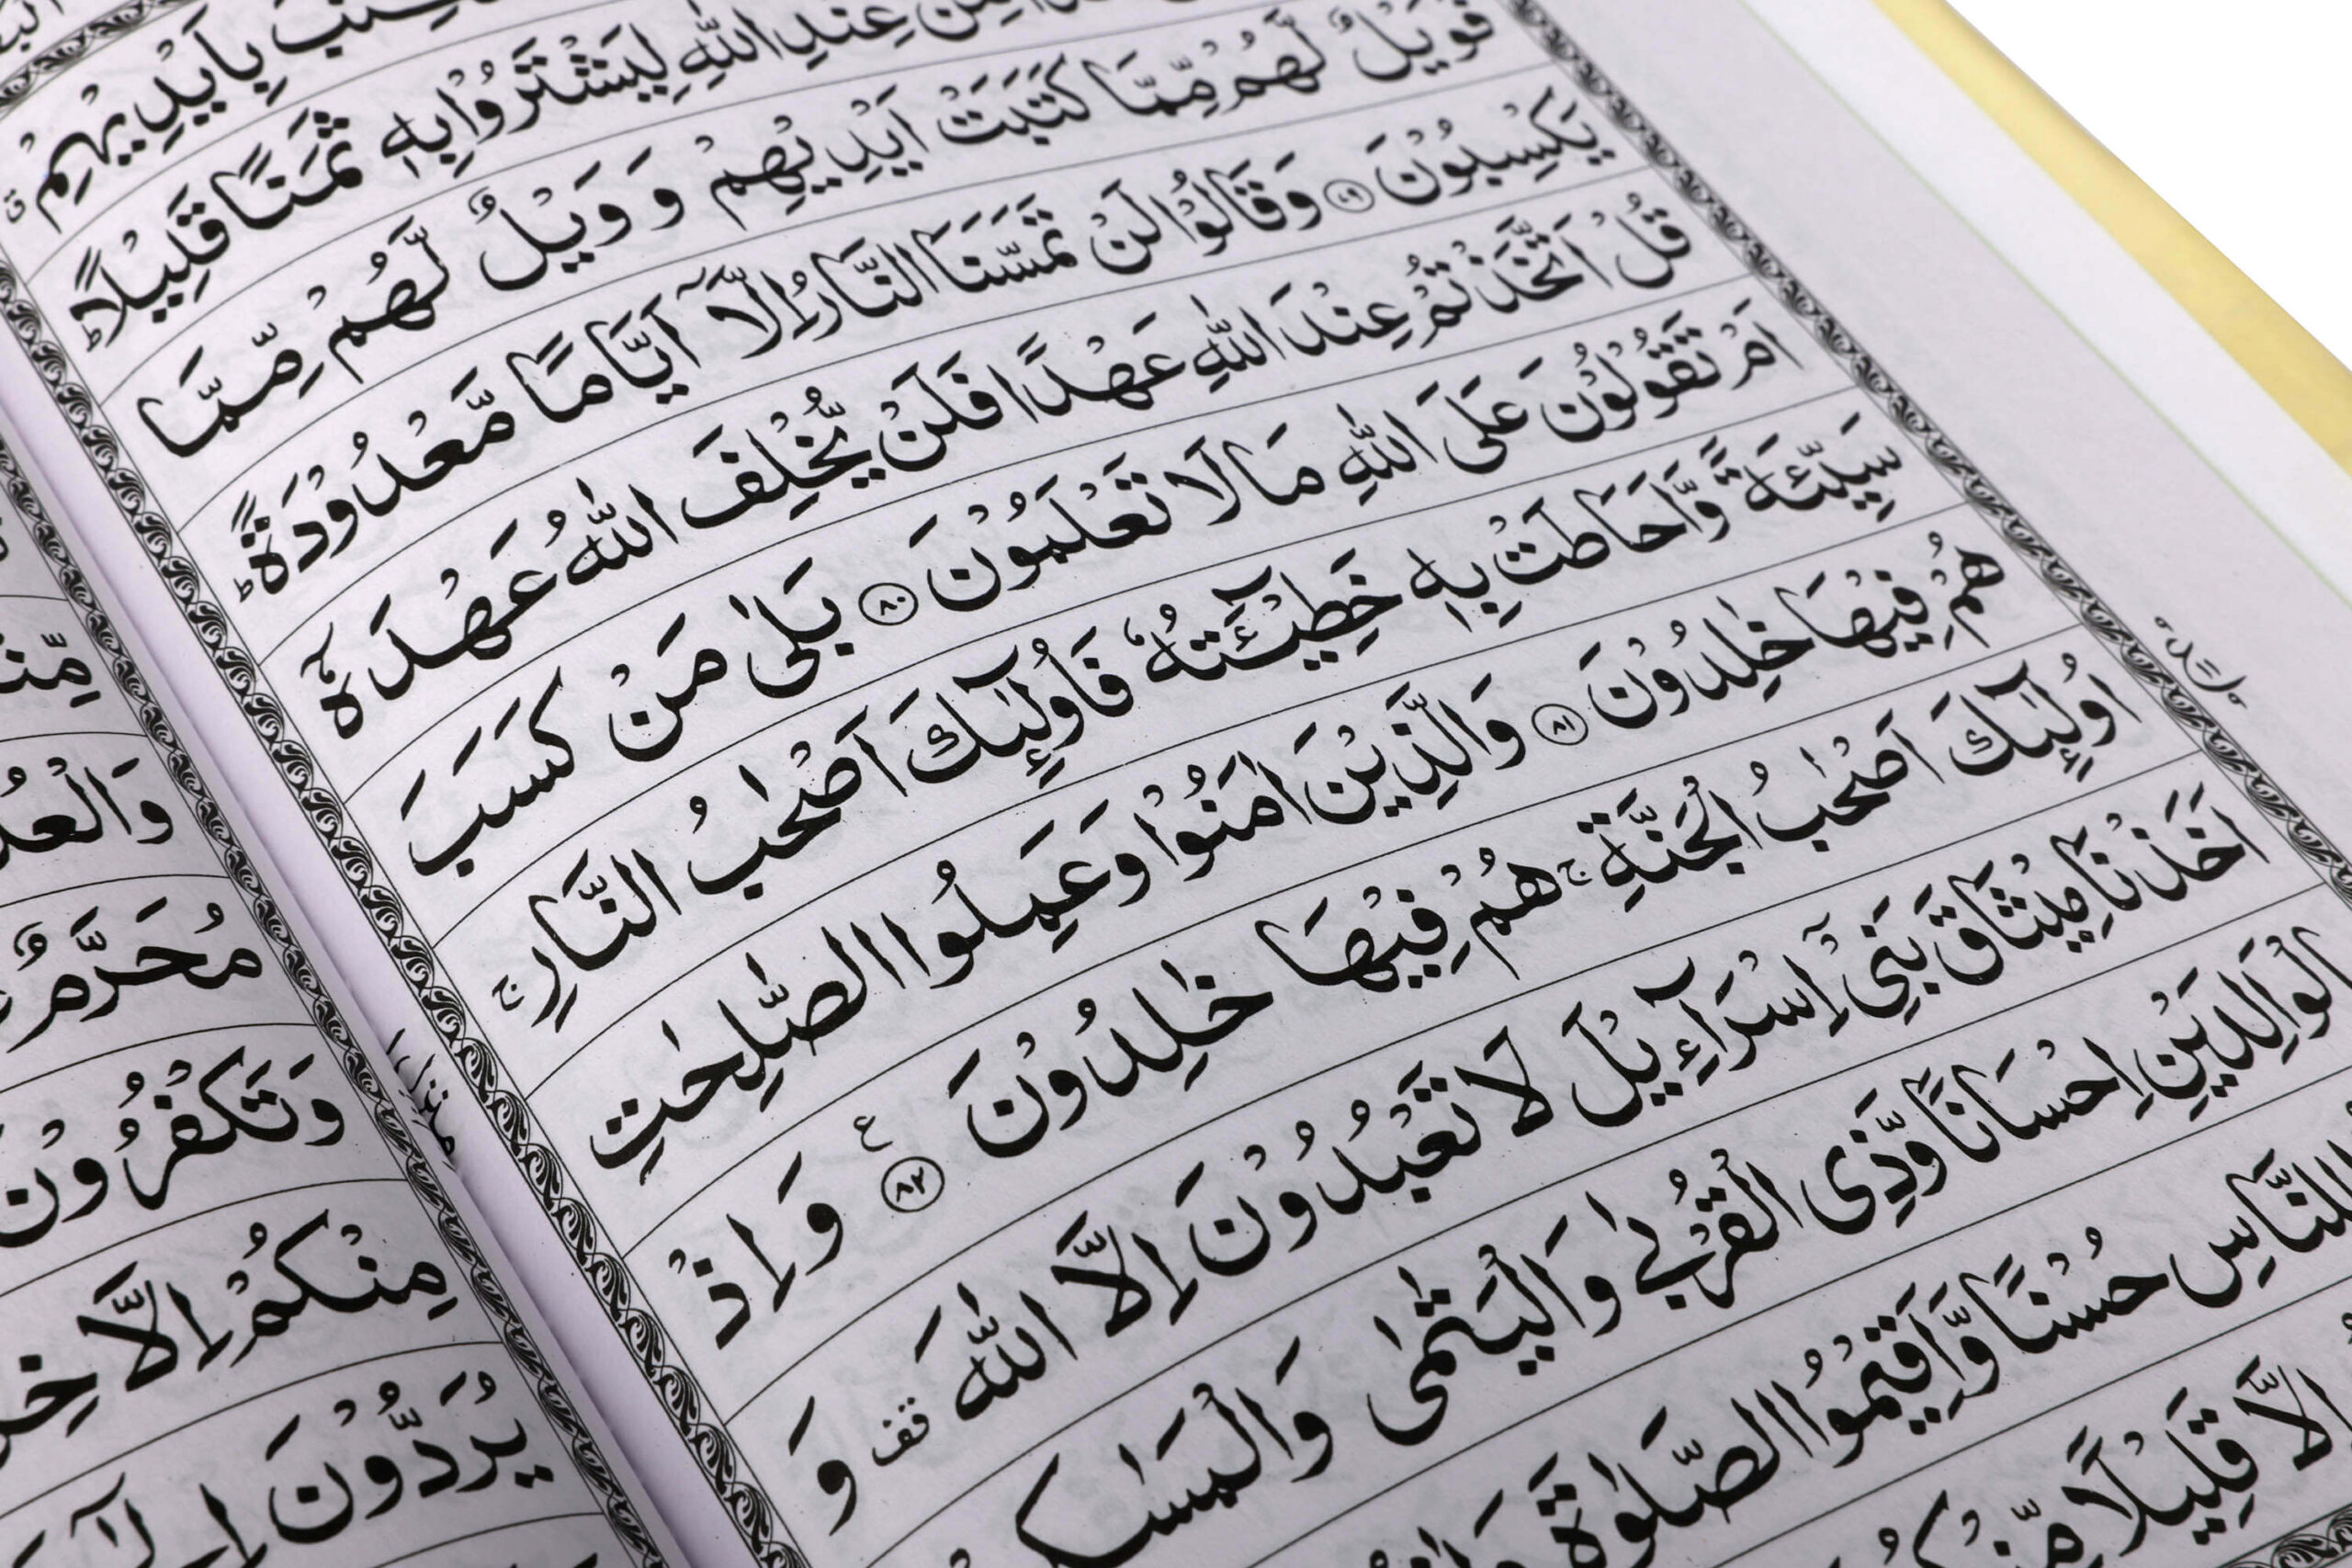 بِاَيْدِيْهِمْ ق
عِنْدِ اللّٰهِ لِيَشْتَرُوْا بِهٖ ثَمَنًا قَلِيْلًا ؕ
فَوَيْلٌ لَّهُمْ مِّمَّا كَتَبَتْ اَيْدِيْهِمْ وَ وَيْلٌ لَّهُمْ مِّمَّا
يَكْسِبُوْنَ ۝۷۹ وَقَالُوْا لَنْ تَمَسَّنَا النَّارُ اِلَّاۤ اَيَّامًا مَّعْدُوْدَةً ؕ
قُلْ اَتَّخَذْتُمْ عِنْدَ اللّٰهِ عَهْدًا فَلَنْ يُّخْلِفَ اللّٰهُ عَهْدَهٗۤ
اَمْ تَقُوْلُوْنَ عَلَى اللّٰهِ مَا لَا تَعْلَمُوْنَ ۝۸۰ بَلٰى مَنْ كَسَبَ
سَيِّئَةً وَّاَحَاطَتْ بِهٖ خَطِيْٓئَتُهٗ فَاُولٰٓئِكَ اَصْحٰبُ النَّارِ ۚ
هُمْ فِيْهَا خٰلِدُوْنَ ۝۸۱ وَالَّذِيْنَ اٰمَنُوْا وَعَمِلُوا الصّٰلِحٰتِ
اُولٰٓئِكَ اَصْحٰبُ الْجَنَّةِ ۚ هُمْ فِيْهَا خٰلِدُوْنَ ۝۸۲ ع وَاِذْ
اَخَذْنَا مِيْثَاقَ بَنِيْۤ اِسْرَآءِيْلَ لَا تَعْبُدُوْنَ اِلَّا اللّٰهَ قف وَ
بِالْوَالِدَيْنِ اِحْسَانًا وَّذِى الْقُرْبٰى وَالْيَتٰمٰى وَالْمَسٰكِيْنِ
لِلنَّاسِ حُسْنًا وَّاَقِيْمُوا الصَّلٰوةَ
اِلَّا قَلِيْلًا مِّنْكُمْ
وَتَكْفُرُوْنَ
مِنْكُمْ اِلَّا
يُرَدُّوْنَ
مُحَرَّمٌ